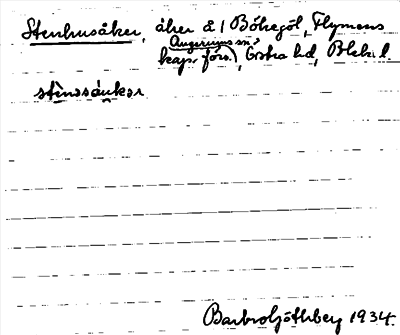 Stenhusåker, åker å (Bökegöl, Flymens
Augerums sn,
kapr förs.), Östra hd, Blek. l.
stìnssåukɘr
Barbro Göthberg 1934.